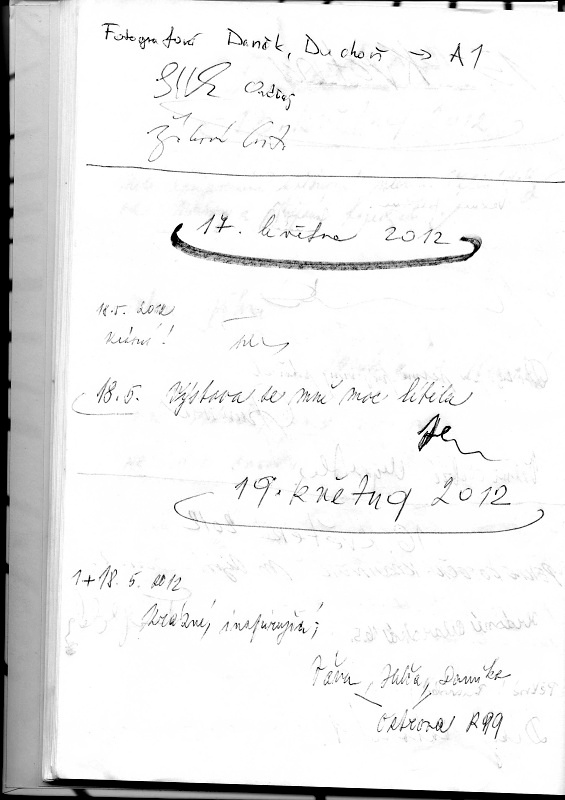 Fotografové Daněk, Duchoň → A1
Ondřej
17. května 2012
18.5. 2012
Krásné!
18.5. Výstava se mně moc líbila
19. května 2012
1+18. 5. 2012
Krásné, inspirující;
Danika
Ostrava R99